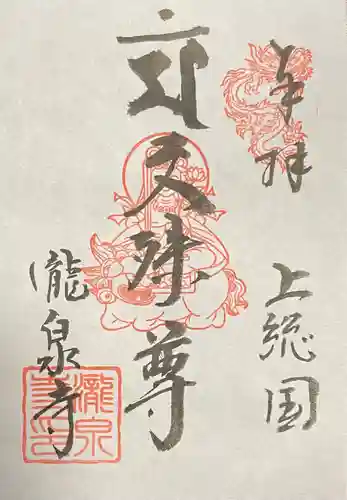 奉拝
上総国
文殊尊
瀧泉寺
瀧泉
寺印